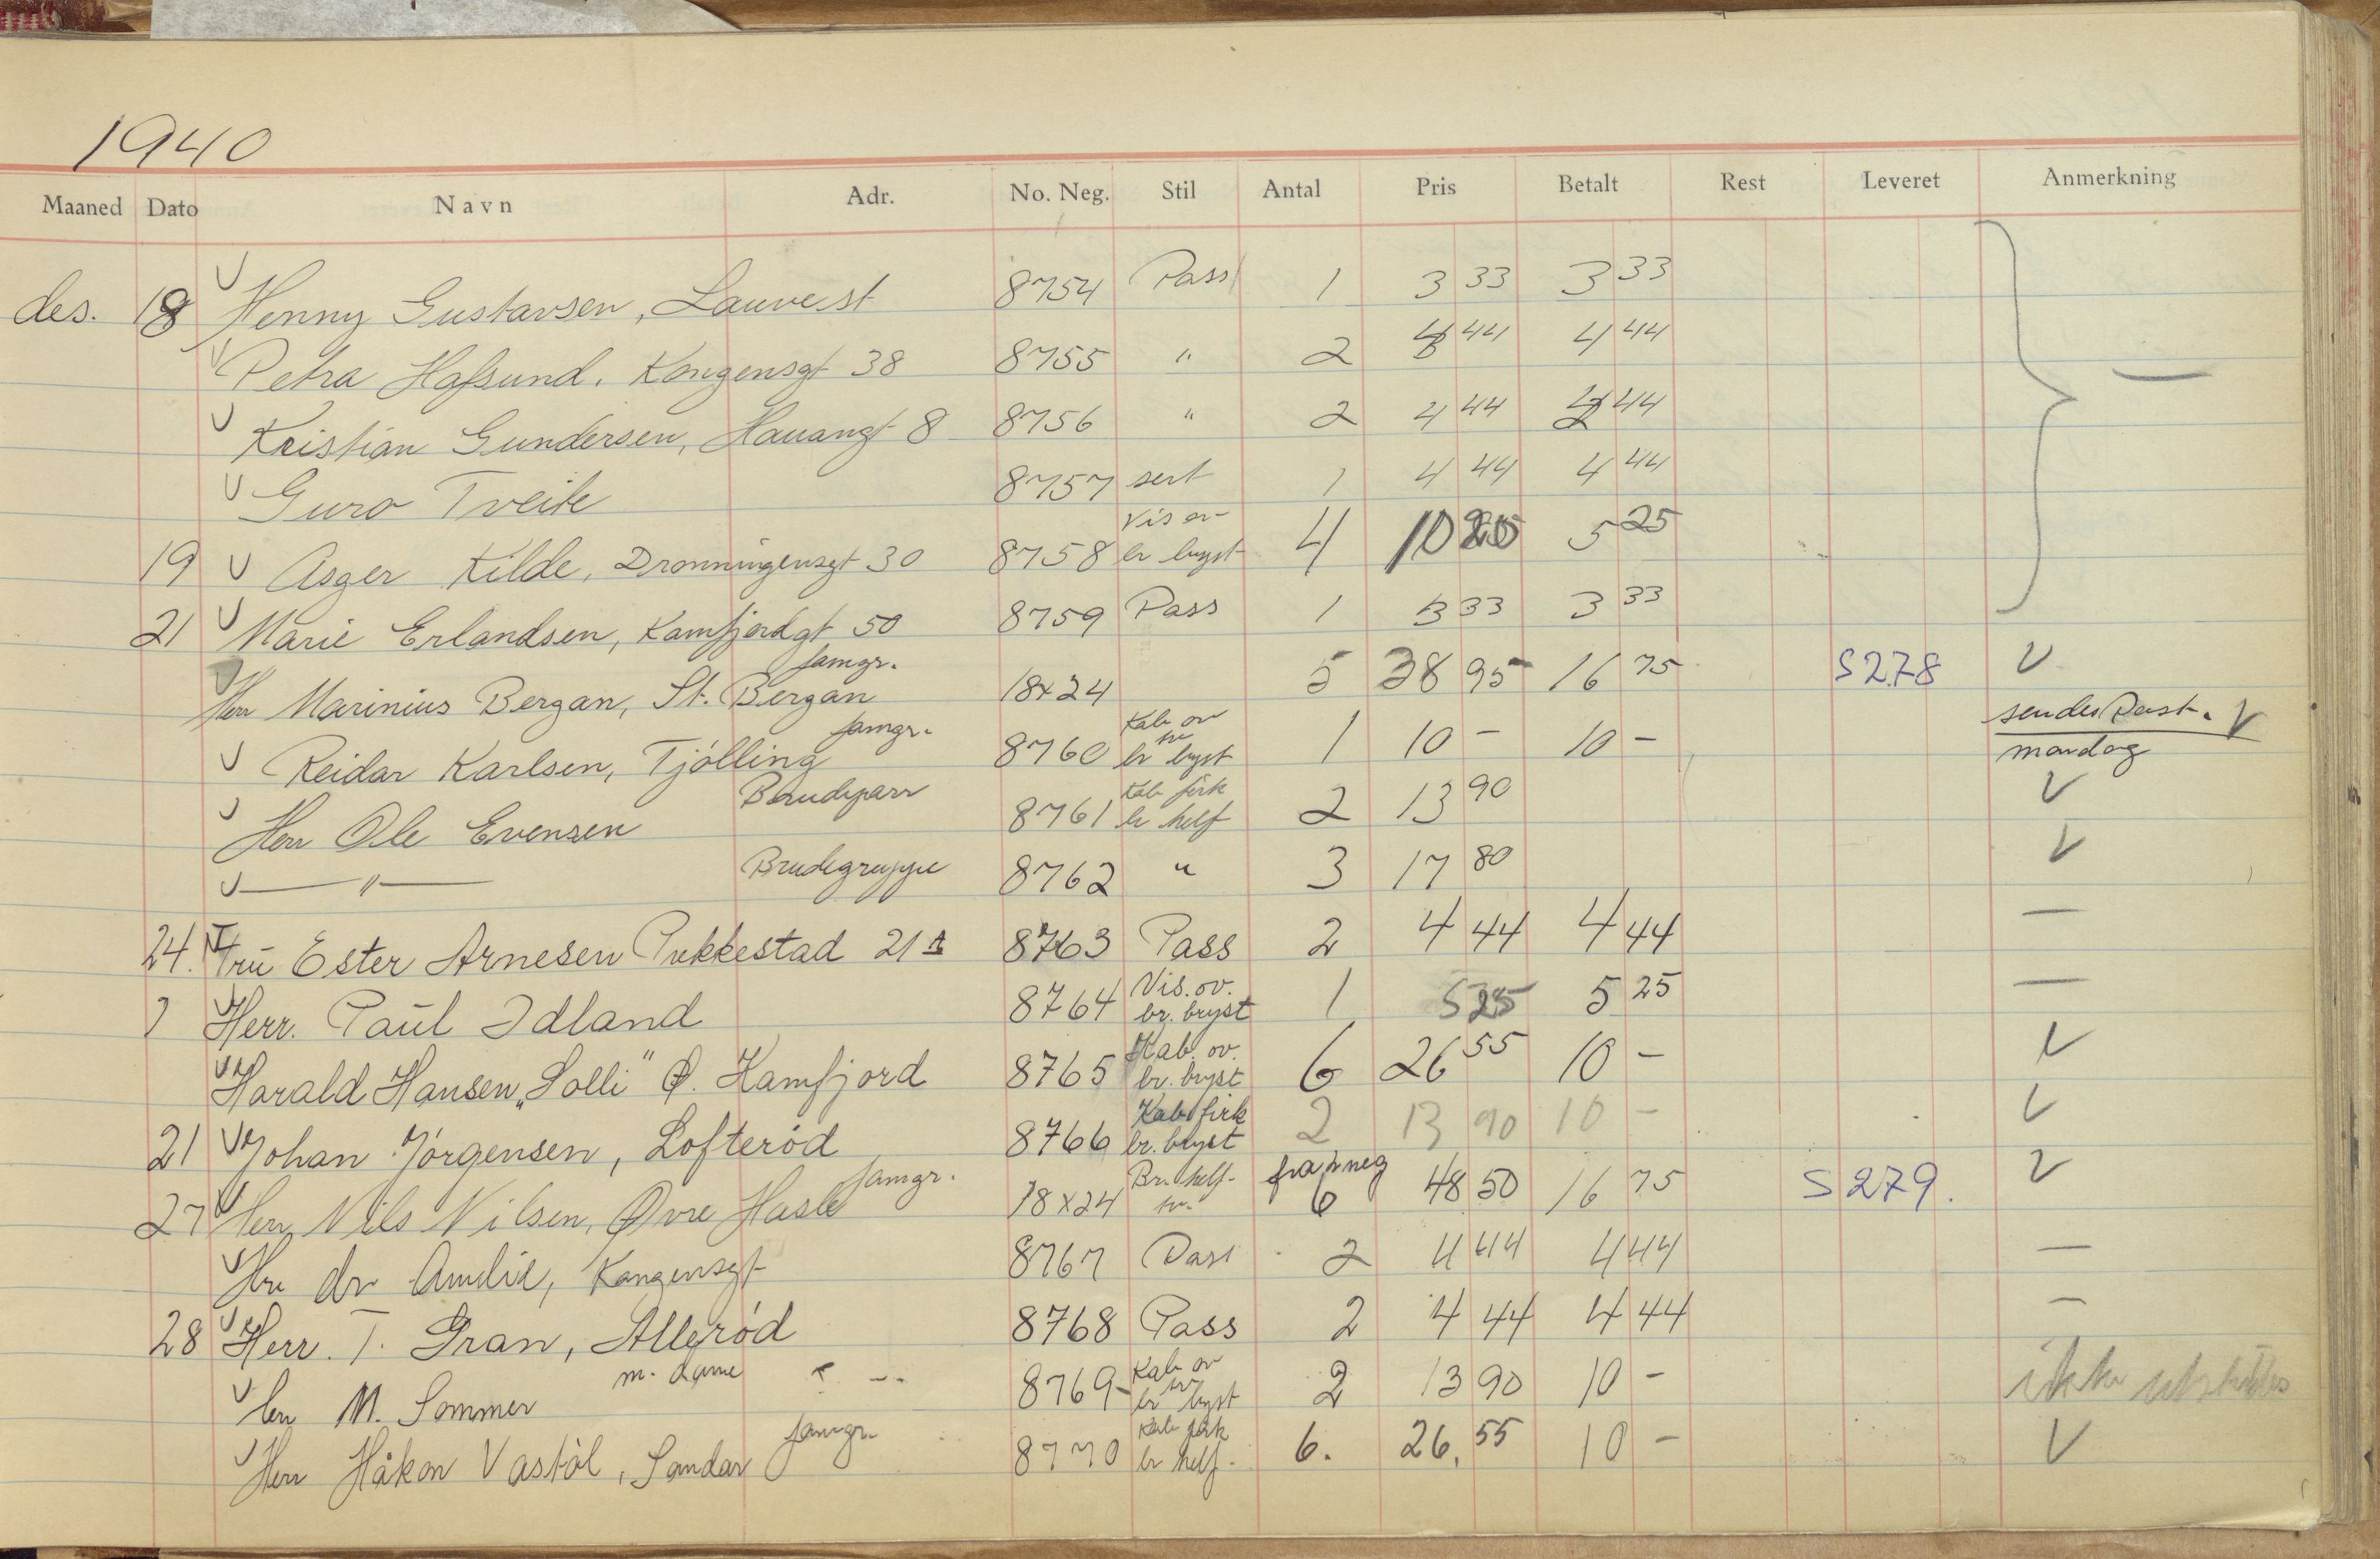 1940
Maaned Dato Navn Adr. No. Neg. Stil Antal Pris Betalt Rest Leveret Anmerkning
des. 18 Henny Gustavsen, Lauvest 8754 Pass 1 3 33 3 33
Petra Hafsund, Kongensgt 38 8755 " 2 4 44 4 44
Kristian Gundersen, Hauangt 8 8756 " 2 4 44 4 44
Guro Tveite 8757 sert 1 4 44 4 44
19 Asger Kilde, Dronningensgt 30 8758 Vis ov br bryst 4 10 5 25
21 Marie Erlandsen, Kamfjordgt 50 8759 Pass 1 3 33 3 33
Herr Marinius Bergan, St. Bergan famgr. 18x24 5 38 95 16 75 S 278 V
Reidar Karlsen, Tjölling famgr. 8760 Kab ov sv br bryst 1 10 - 10 - sendes Post. V mandag
Herr Ole Evensen Brudeparr 8761 Kab firk br helf 2 13 90 V
— " — Brudegruppe 8762 " 3 17 80 V
24. Fru Ester Arnesen Pukkestad 21 8763 Pass 2 4 44 4 44 —
Herr. Paul Idland 8764 Vis. ov. br. bryst 1 5 25 5 25 —
Harald Hansen „Solli" Ø. Kamfjord 8765 Kab. ov. br. bryst 6 26 55 10 - V
21 Johan Jörgensen, Lofteröd 8766 Kab firk br. bryst 2 13 90 10 - V
27 Herr Nils Nilsen, Øvre Hasle famgr. 18x24 Br. helf. sv. fra 2 neg 6 48 50 16 75 S 279. V
Fru dr Amlie, Kongensgt 8767 Pass 2 4 44 4 44 —
28 Herr. T. Gran, Alleröd 8768 Pass 2 4 44 4 44 —
Herr M. Sommer m. dame 8769 Kab ov sv br bryst 2 13 90 10 - ikke
Herr Håkon Vastöl, Sandar famgr. 8770 Kab firk br helf. 6. 26. 55 10 - V